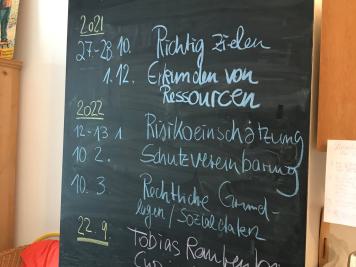 2021
27-28 10. Richtig zielen
1.12. Erkunden von
Ressourcen
2022
12-13 1 Risikoeinschätzung
10 2. Schutzvereinbarung
10.3. Rechtliche Grund-
lagen/Sozialdaten
22.9. Tobias